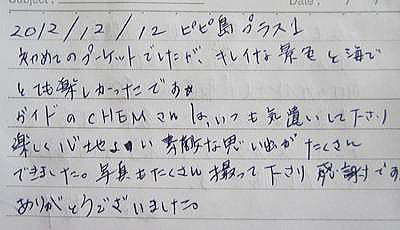 Subject: Date:
2012/12/12 ピピ島プラス1
初めてのプーケットでしたが、キレイな景色と海で
とても楽しかったです
ガイドのCHEMさんはいつも気遣いして下さり
楽しく心地よい素敵な思い出がたくさん
できました。写真もたくさん撮って下さり感謝です
ありがとうございました。